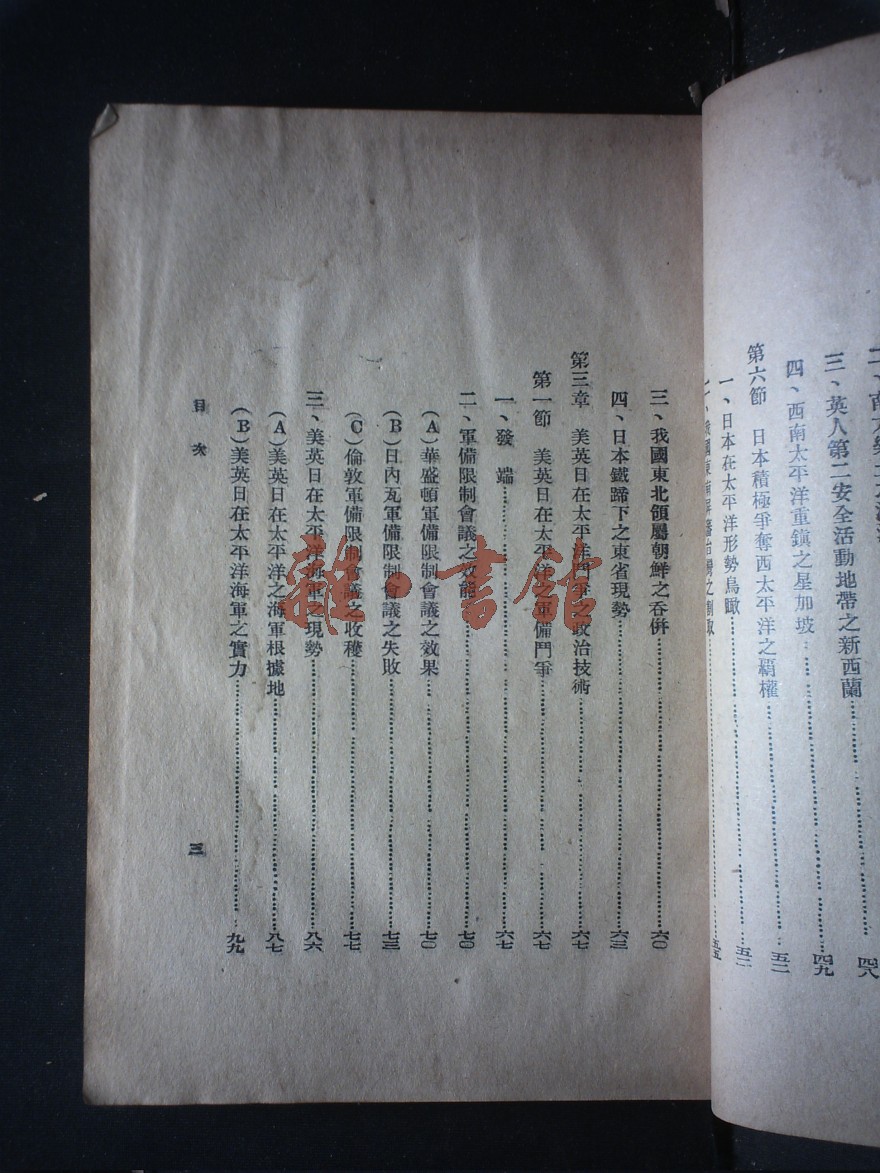 三、英人第二安全活動地帶之新西蘭……四九
四、西南太平洋重鎮之星加坡……五二
第六節　日本積極爭奪西太平洋之覇權……五二
一、日本在太平洋形勢鳥瞰……五五
三、我國東北領屬朝鮮之吞併……六〇
四、日本鐵蹄下之東省現勢……六三
第三章　美英日在太平洋鬥爭之政治技術……六七
第一節　美英日在太平洋之軍備鬥爭……六七
一、發　端……六七
二、軍備限制會議之效能……七〇
（A）華盛頓軍備限制會議之效果……七〇
（B）日內瓦軍備限制會議之失敗……七三
（C）倫敦軍備限制會議之收穫……七七
三、美英日在太平洋海軍之現勢……八六
（A）美英日在太平洋之海軍根據地……八七
（B）美英日在太平洋海軍之實力……九九
目　次
三
雜·書館